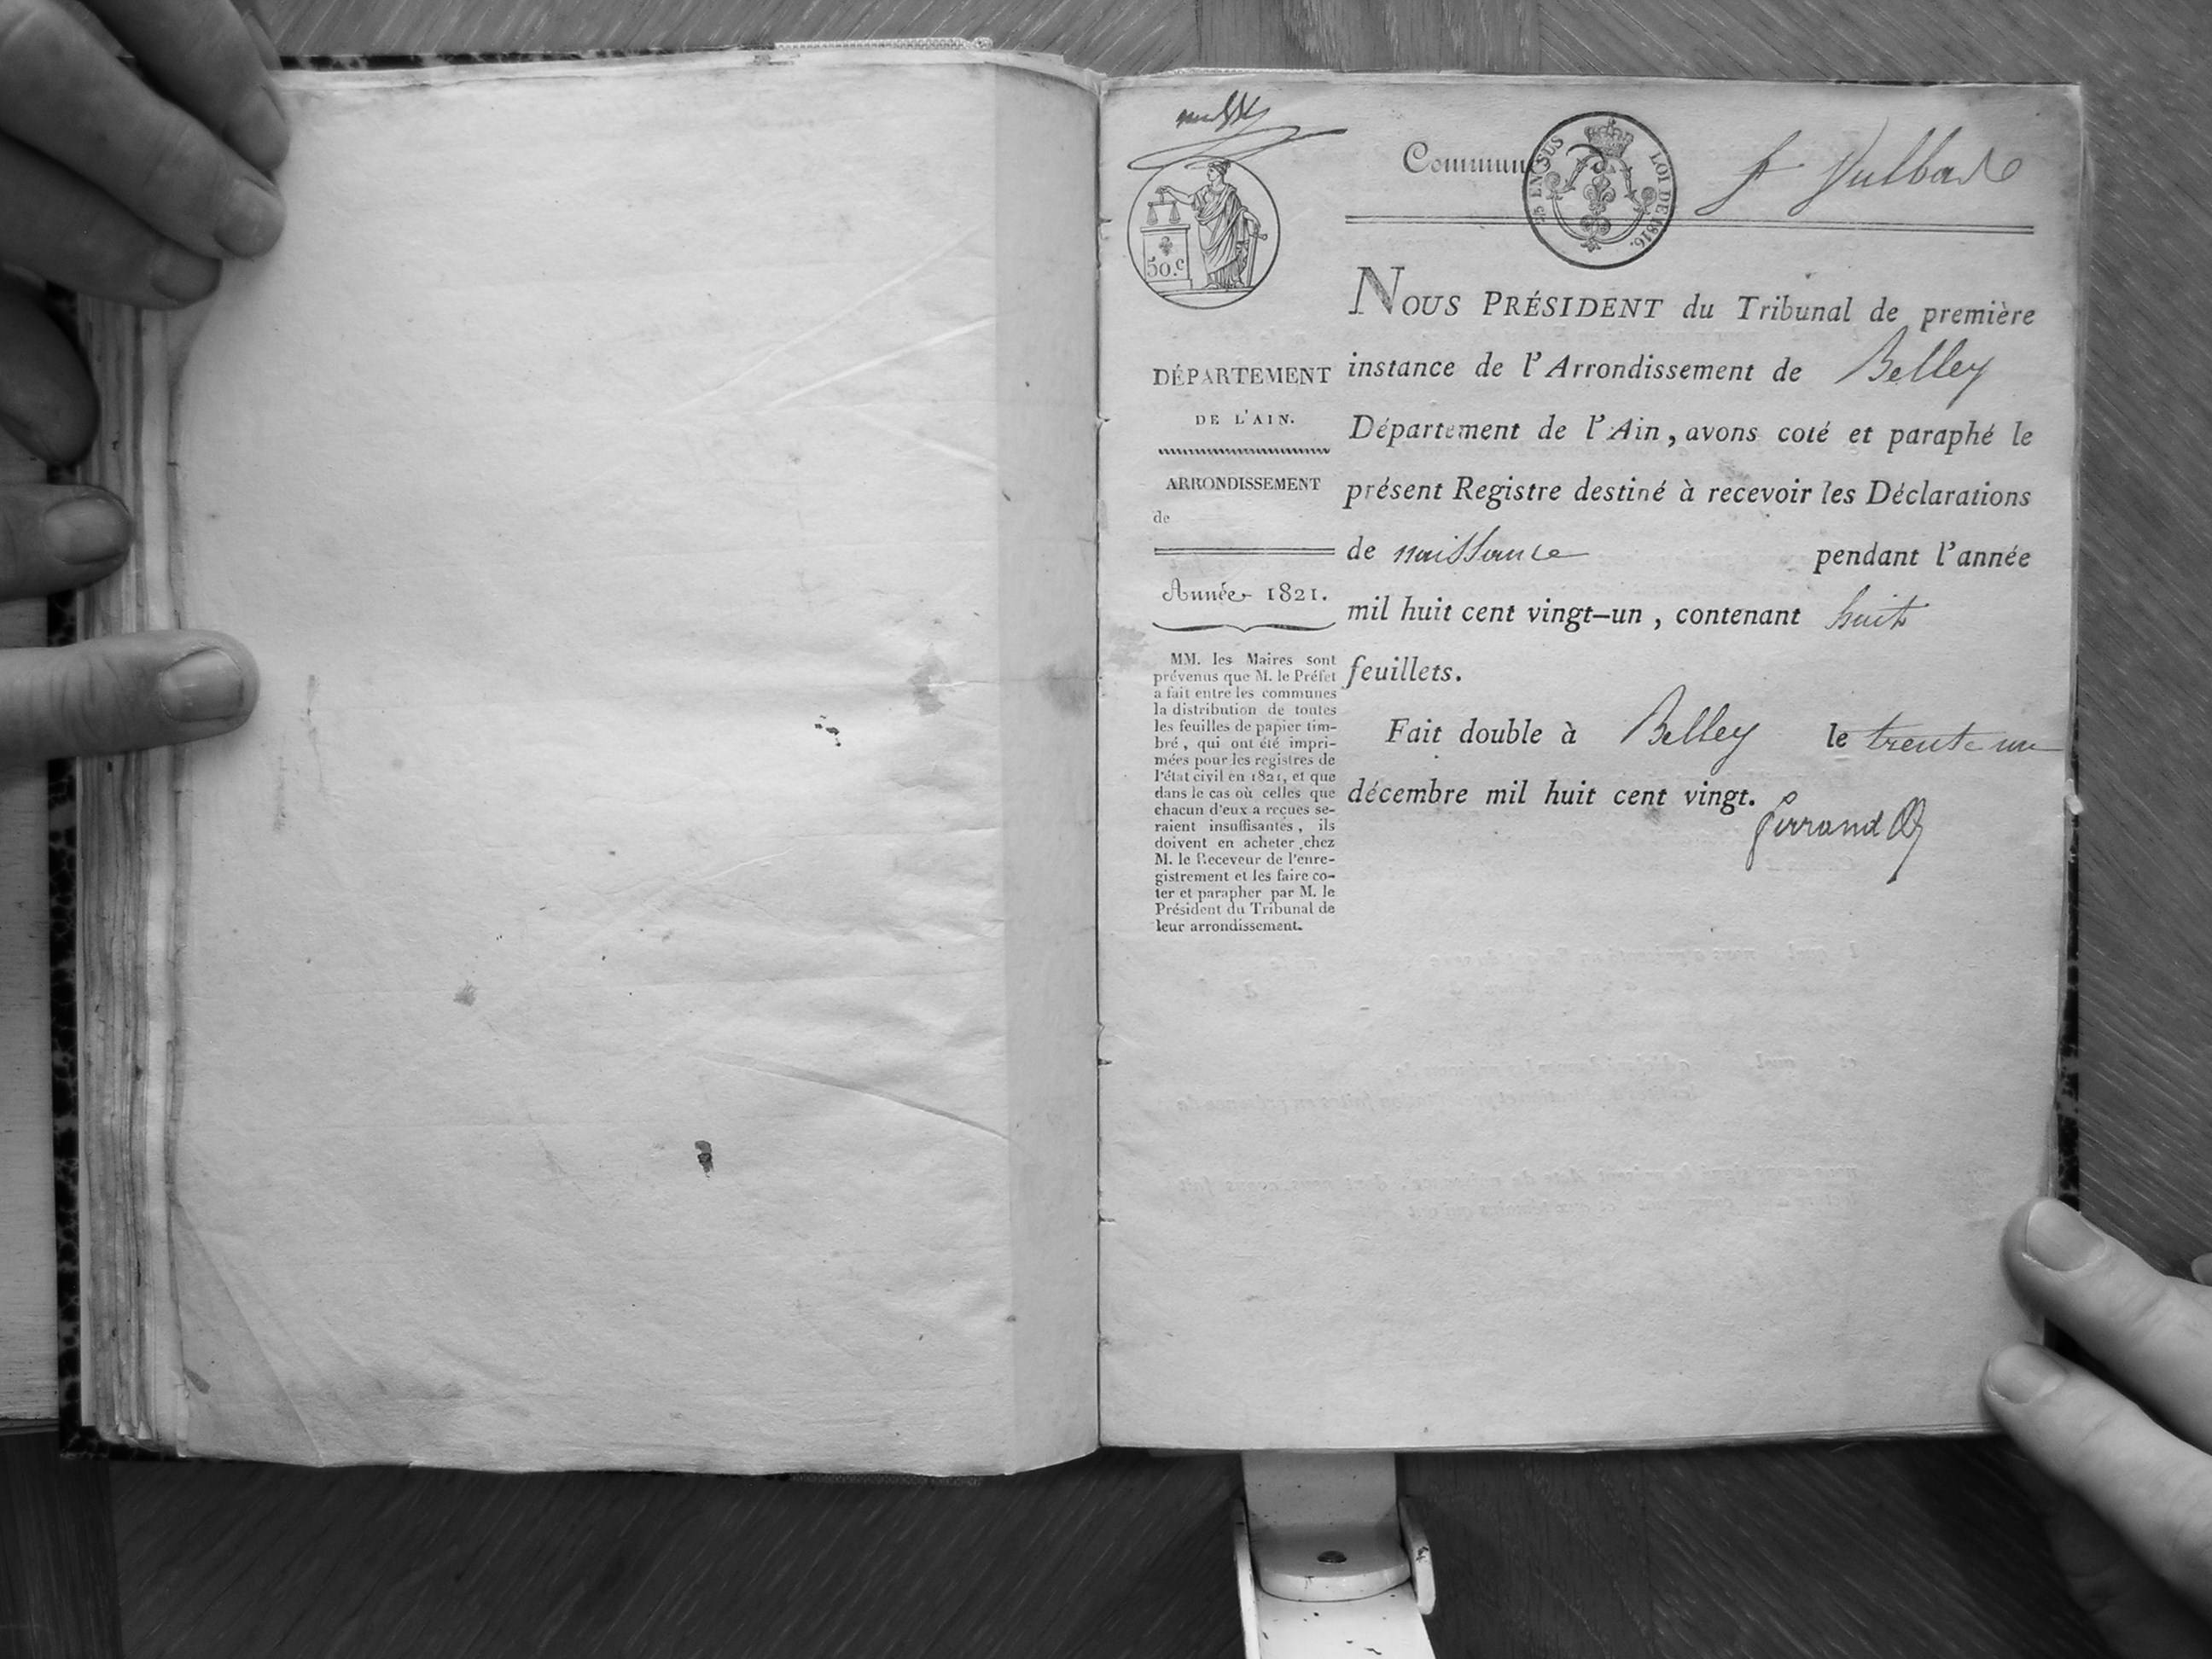 Commune St Vulbade
25 EN SUS LOI DE 1816.
50.c
NOUS PRÉSIDENT du Tribunal de première
instance de l'Arrondissement de Belley
Département de l'Ain, avons coté et paraphé le
présent Registre destiné à recevoir les Déclarations
de naissance pendant l'année
mil huit cent vingt-un, contenant huit
feuillets.
Fait double à Belley le trente un
décembre mil huit cent vingt.
DÉPARTEMENT
DE L'AIN.
ARRONDISSEMENT
de
Année 1821.
MM. les Maires sont
prévenus que M. le Préfet
a fait entre les communes
la distribution de toutes
les feuilles de papier tim-
bré, qui ont été impri-
mées pour les registres de
l'état civil en 1821, et que
dans le cas où celles que
chacun d'eux a reçues se-
raient insuffisantes, ils
doivent en acheter chez
M. le Receveur de l'enre-
gistrement et les faire co-
ter et parapher par M. le
Président du Tribunal de
leur arrondissement.